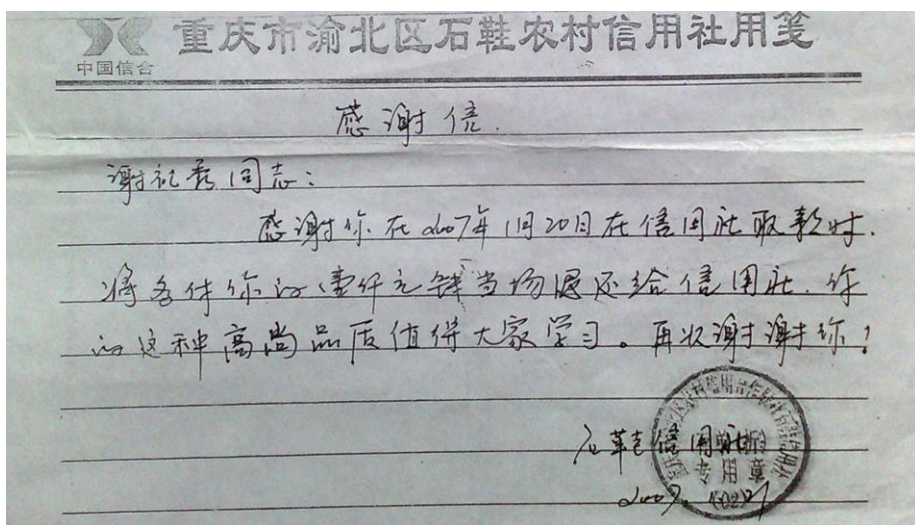 重庆市渝北区石鞋农村信用社用笺
中国信合
感谢信.
谢祀秀同志:
感谢你在2007年1月20日在信用社取款时.
将多付你的壹仟元钱当场退还给信用社.你
的这种高尚品质值得大家学习。再次谢谢你!
石鞋信用社
专用章
(02)